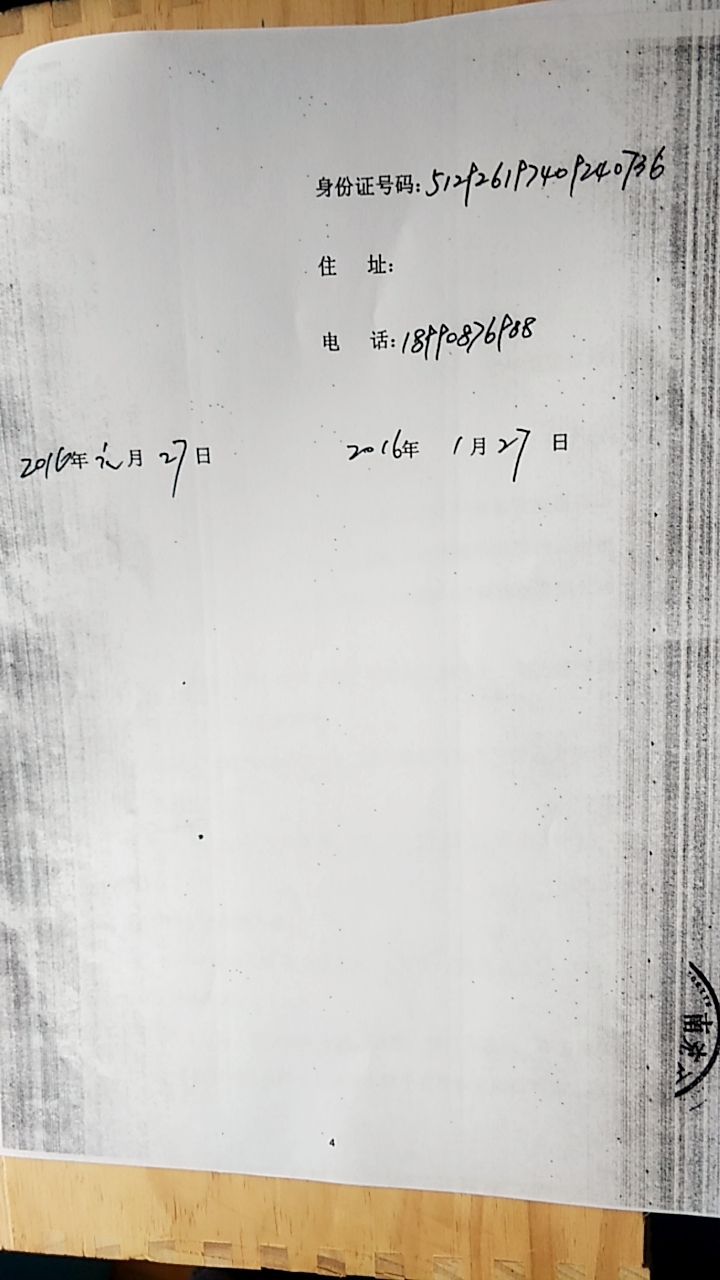 身份证号码:512926197409240736
住 址:
电 话:18990876988
2016年元月27日 2016年 1月27 日
南充
4